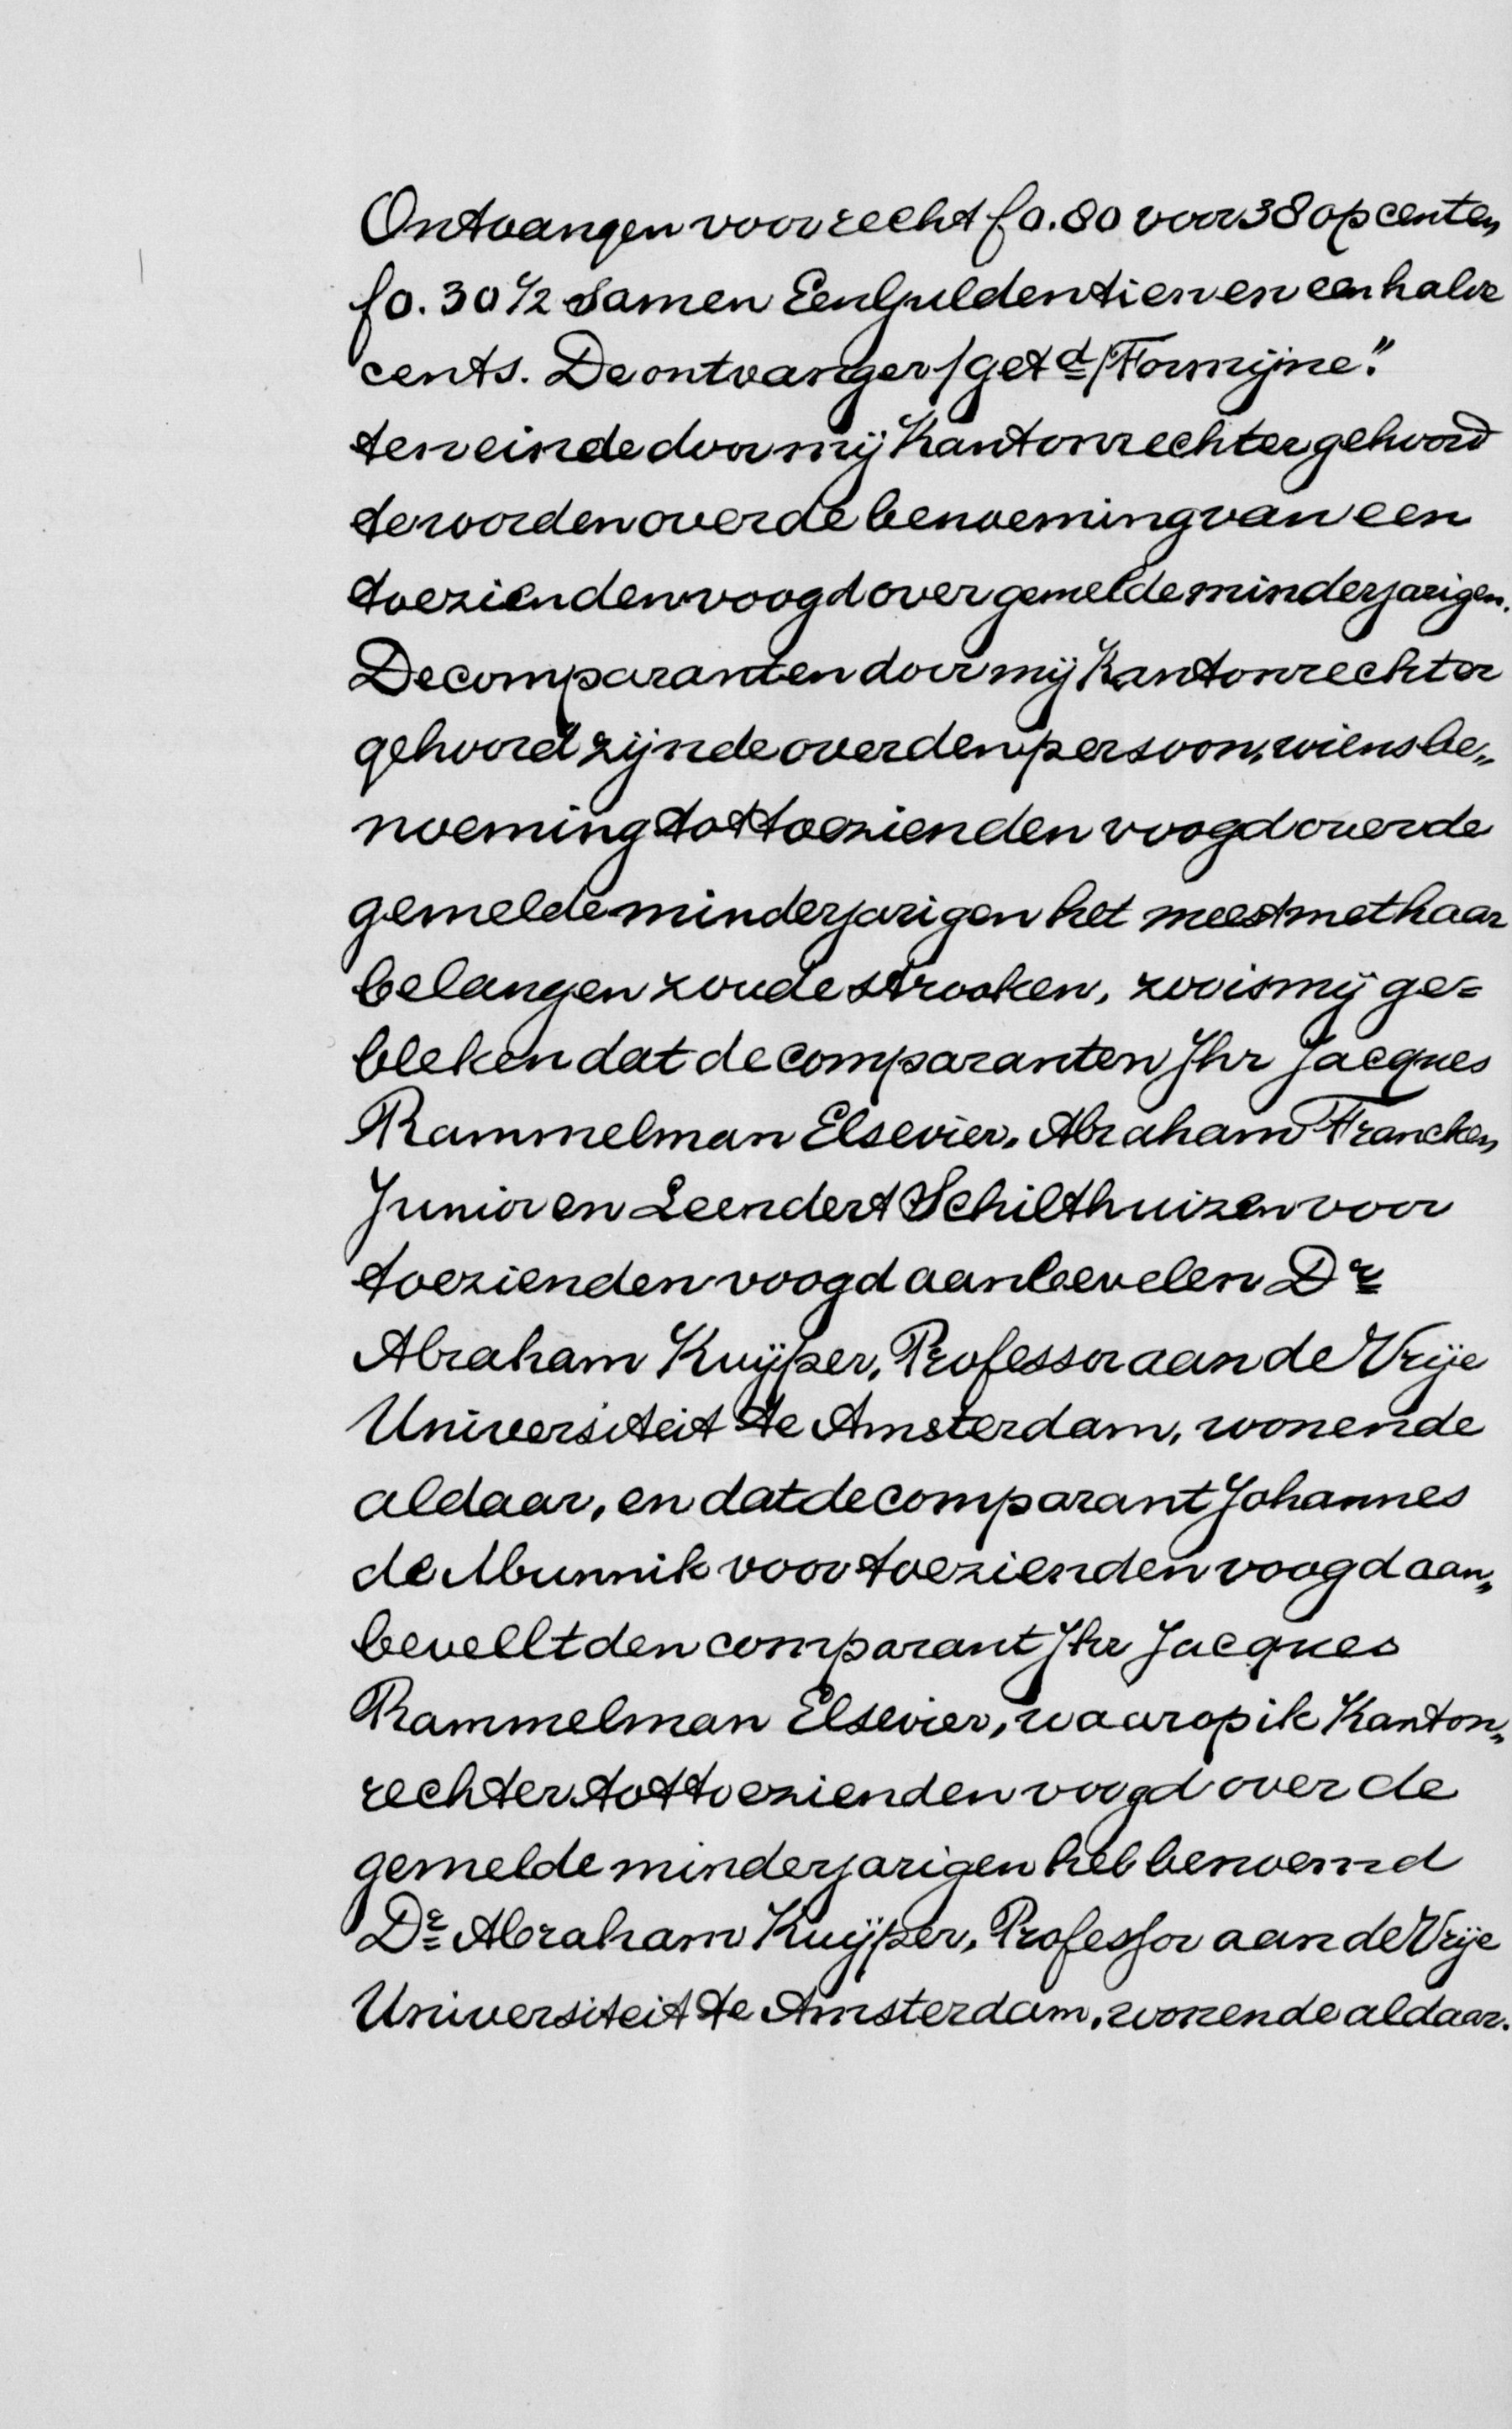 Ontvangen voor recht f 0.80 voor 38 opcenten
f 0.30 1/2 Samen Een Gulden tien en een halve
cents. De ontvanger /getd/ Formijne."
ten einde door mij Kantonrechter gehoord
te worden over de benoeming van een
toezienden voogd over gemelde minderjarigen.
De comparanten door mij Kantonrechter
gehoord zijnde over den persoon, wiens be„
noeming tot toezienden voogd over de
gemelde minderjarigen het meest met haar
belangen zoude strooken, zoo is mij ge=
bleken dat de comparanten Jhr Jacques
Rammelman Elsevier, Abraham Francken
Junior en Leendert Schilthuizen voor
toezienden voogd aanbevelen Dr
Abraham Kuijper, Professor aan de Vrije
Universiteit te Amsterdam, wonende
aldaar, en dat de comparant Johannes
de Munnik voor toezienden voogd aan„
bevellt den comparant Jhr Jacques
Rammelman Elsevier, waarop ik Kanton„
rechter tot toezienden voogd over de
gemelde minderjarigen heb benoemd
Dr Abraham Kuijper, Professor aan de Vrije
Universiteit te Amsterdam, wonende aldaar.